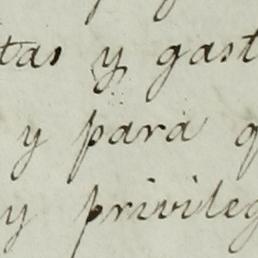 tas y gast
y para q
y privileg